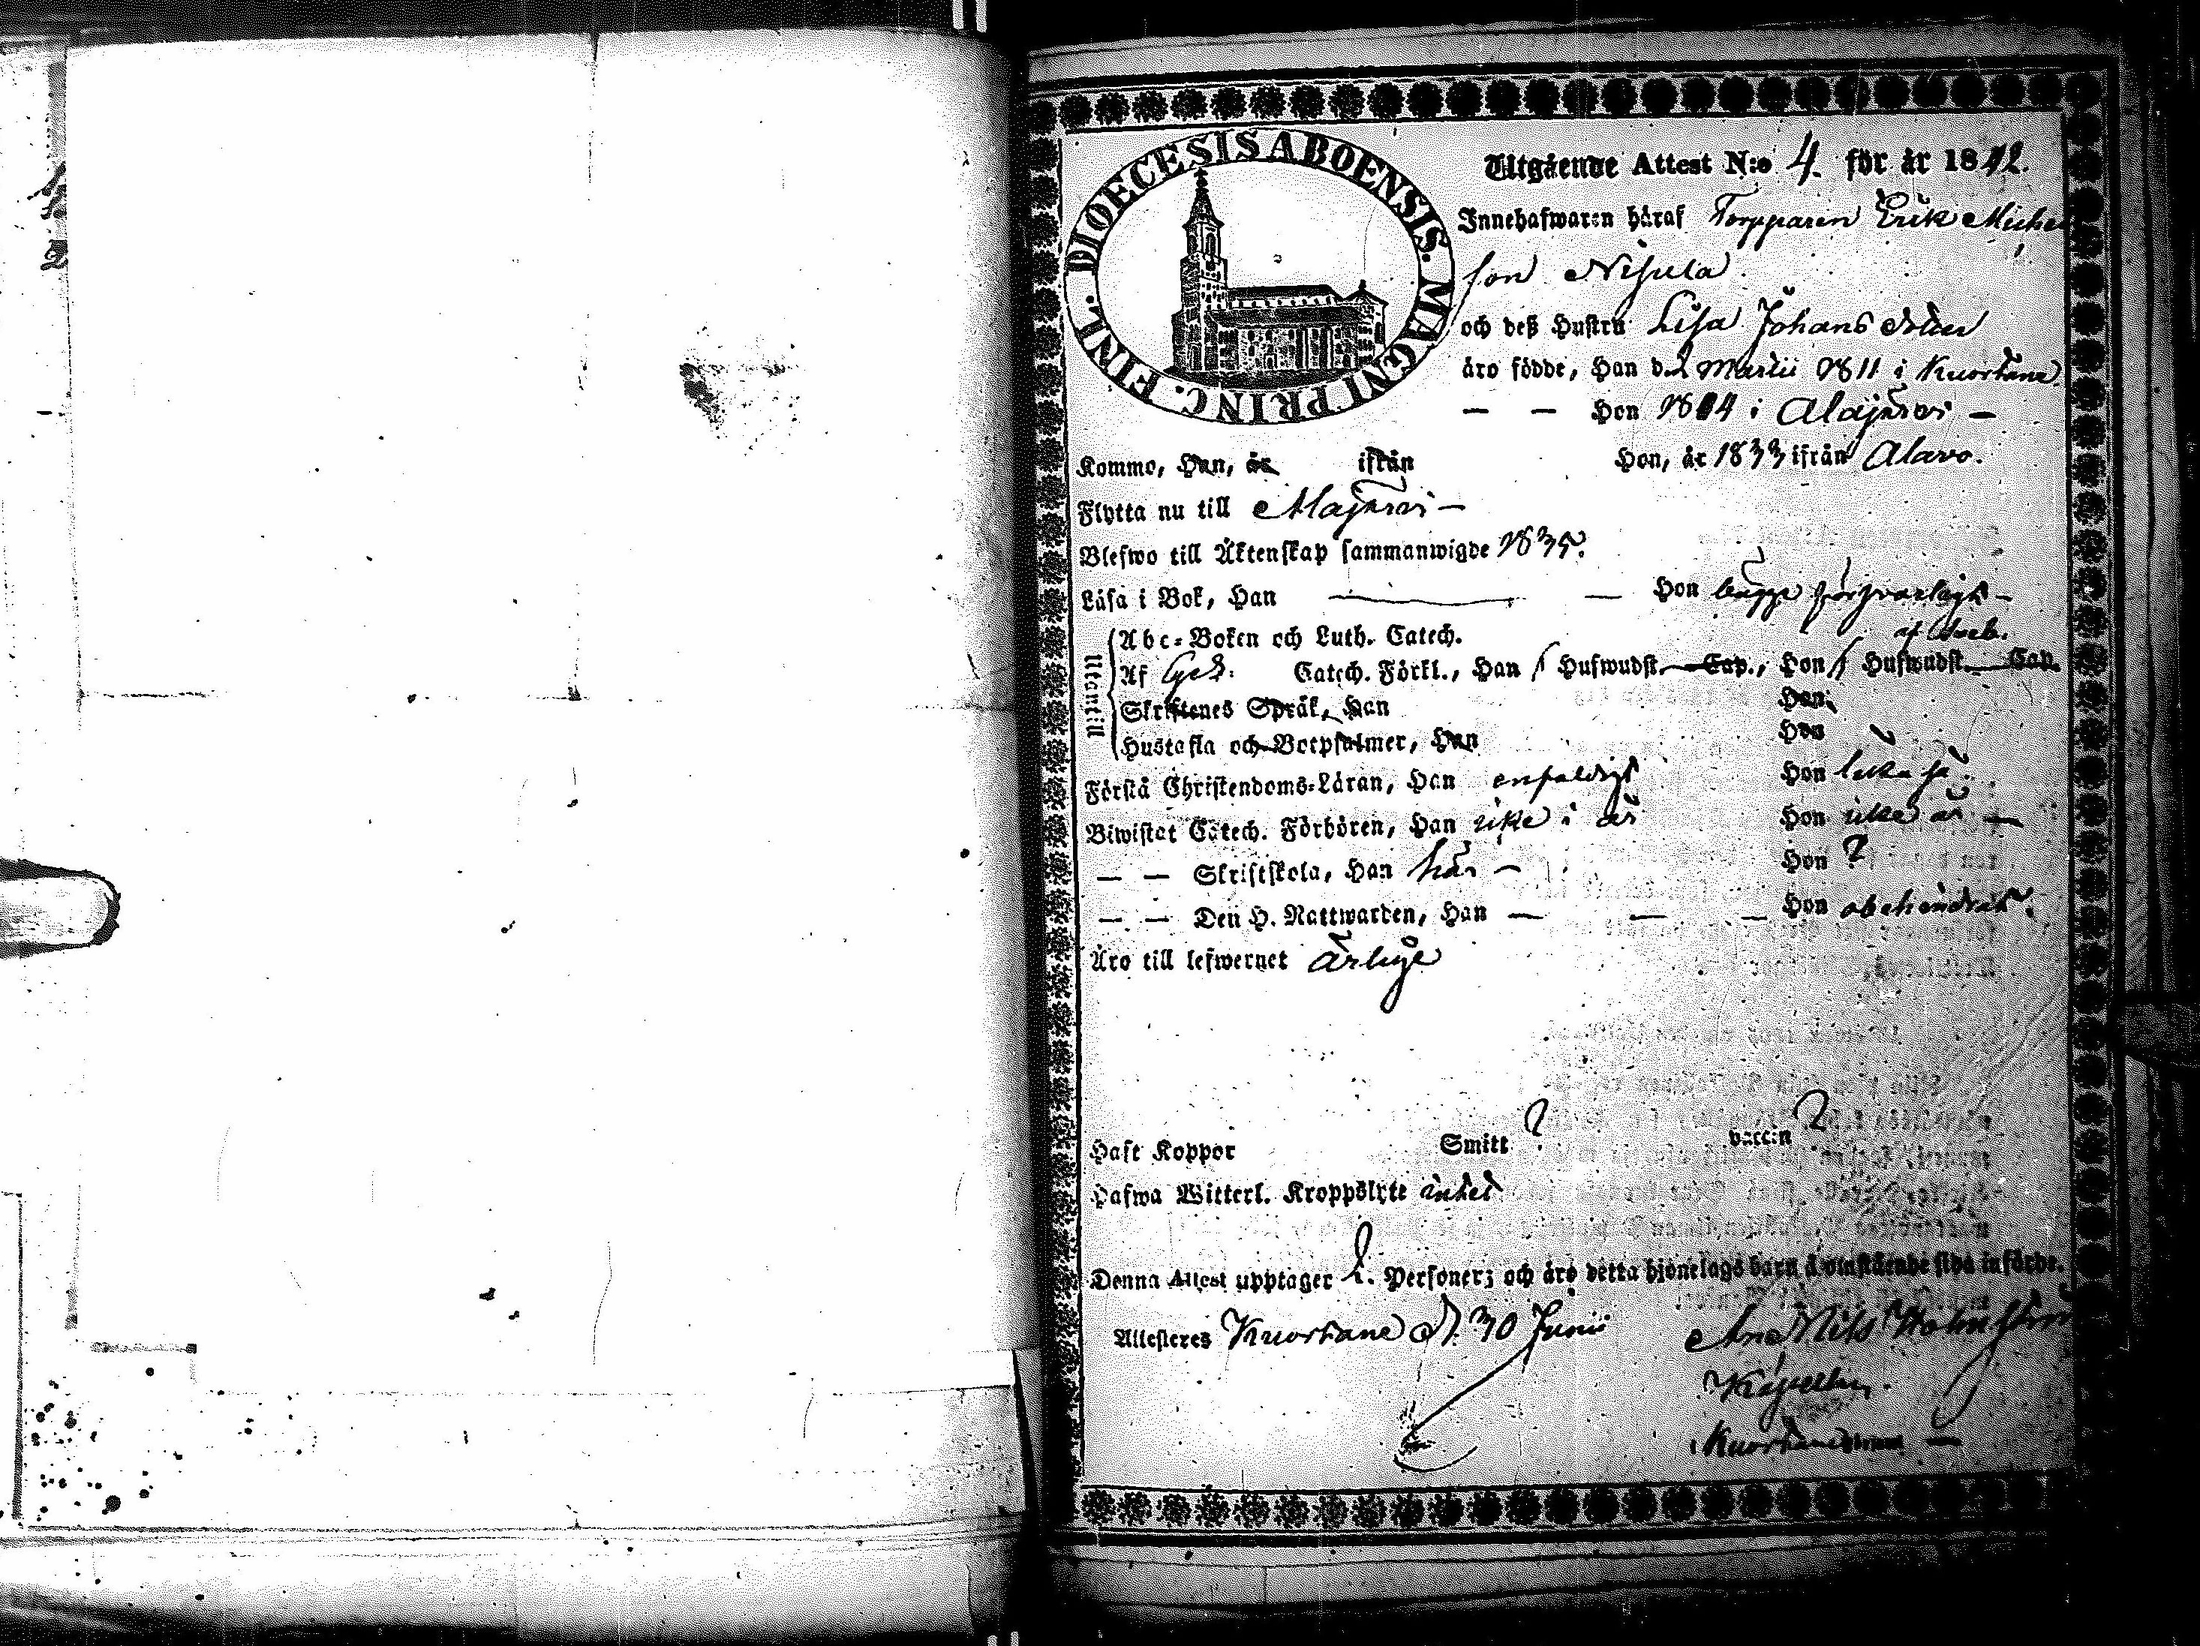 DIOECESIS ABOENSIS. MAGNI PRINC. FINL.
Utgående Attest N:o 4. för år 1842.
Innehafwaren häraf Torpparen Erik Michel
son Nisula
och deß Hustru Lisa Johans dotter
äro födde, Han d. 2 Martii 1811 i Kuortane.
— — Hon 1814 i Alajärvi —
Komne, Han, år ifrån Hon, år 1833 ifrån Alavo.
Flytta nu till Alajärvi —
Blefwo till Äktenskap sammanwigde 1835.
Läsa i Bok, Han — Hon begge försvarligt —
Utantill
Abc-Boken och Luth. Catech. af Sveb.
Af Catech. Förkl., Han Hufwudst. Cap., Hon Hufwudst. Cap.
Skriftenes Språk, Han Hon
Hustafla och Botpsalmer, Han Hon
Förstå Christendoms-Läran, Han enfaldigt Hon lika så.
Biwistat Catech. Förhören, Han icke i år Hon icke år —
— — Skriftskola, Han här — Hon ?
— — Den H. Nattwarden, Han — — — Hon obehindrat.
Äro till lefwernet ärlige
Haft Koppor Smitt ? vaccin ?
Hafwa Witterl. Kroppslyte intet
Denna Attest upptager 2. Personer; och äro detta hjonelags barn å omstående sida införde.
Attesteres Kuortane d. 30 Junii Nils Holmström
Kapellan
i Kuortane